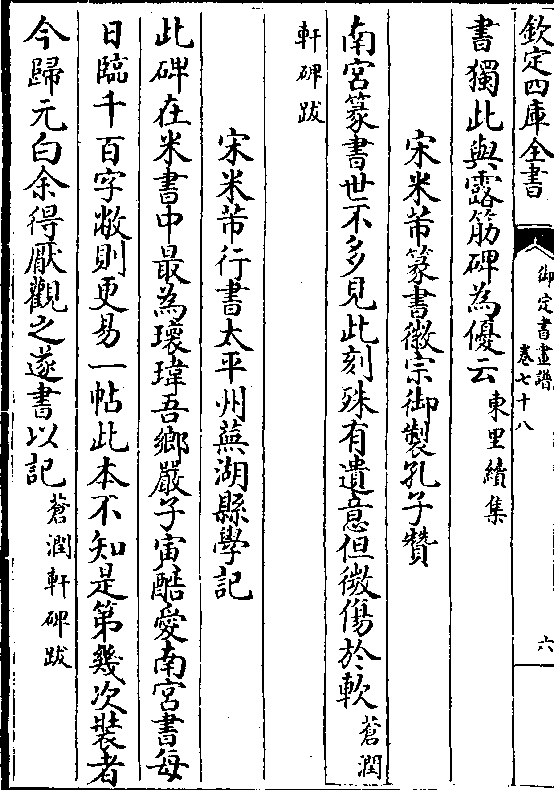 欽定四庫全書
御定書畫譜
卷七十八
六
書獨此與露筋碑為優云東里續集
宋米芾篆書徽宗御製孔子贊
南宮篆書世不多見此刻殊有遺意但微傷於軟蒼潤
軒碑跋
宋米芾行書太平州蕪湖縣學記
此碑在米書中最為瓌瑋吾鄉嚴子寅酷愛南宮書每
日臨千百字敝則更易一帖此本不知是第幾次裝者
今歸元白余得厭觀之遂書以記蒼潤軒碑跋